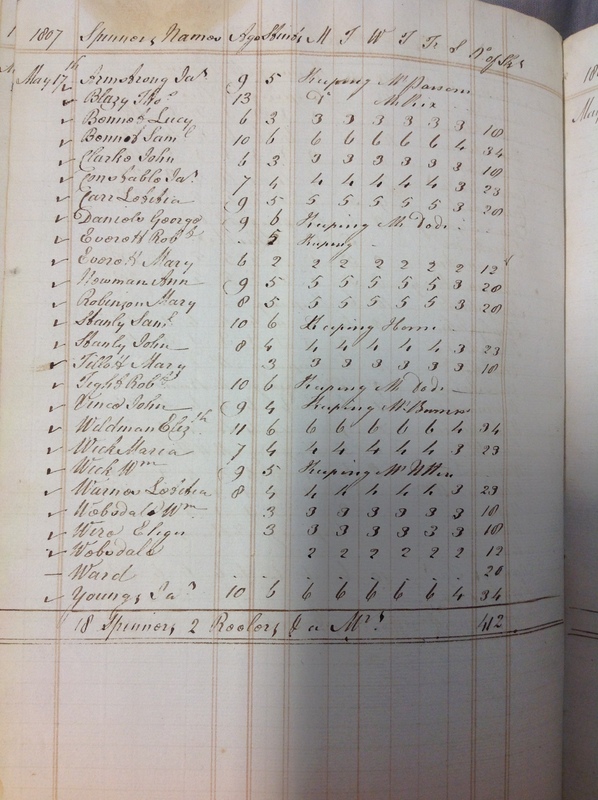 1807 Spinners Names Age Stint M T W T Fr S No of Sks
May 17th Armstrong Jas 9 5 Keeping Mr Parsons
Blazy Thos 13 Do Mr Rix
Bonnet Lucy 6 3 3 3 3 3 3 3 18
Bonnet Saml 10 6 6 6 6 6 6 4 34
Clarke John 6 3 3 3 3 3 3 3 18
Constable Jas 7 4 4 4 4 4 4 3 23
Carr Letitia 9 5 5 5 5 5 5 3 28
Daniels George 9 6 Keeping Mr Dods
Everett Robt 5 Keeping
Everett Mary 6 2 2 2 2 2 2 2 12
Newman Ann 9 5 5 5 5 5 5 3 28
Robinson Mary 8 5 5 5 5 5 5 3 28
Stanly Saml 10 6 Keeping Home
Stanly John 8 4 4 4 4 4 4 3 23
Tillott Mary 3 3 3 3 3 3 3 18
Tight Robt 10 6 Keeping Mr Dods
Vince John 9 4 Keeping Mr
Wildman Elizth 11 6 6 6 6 6 6 4 34
Wick Maria 7 4 4 4 4 4 4 3 23
Wick Wm 9 5 Keeping Mr
Warnes Letitia 8 4 4 4 4 4 4 3 23
Wobsdale Wm 3 3 3 3 3 3 3 18
Wire Eliza 3 3 3 3 3 3 3 18
Wobsdale 2 2 2 2 2 2 12
Ward 20
Youngs Jas 10 6 6 6 6 6 6 4 34
18 Spinners 2 Reelers & a Mrs 412